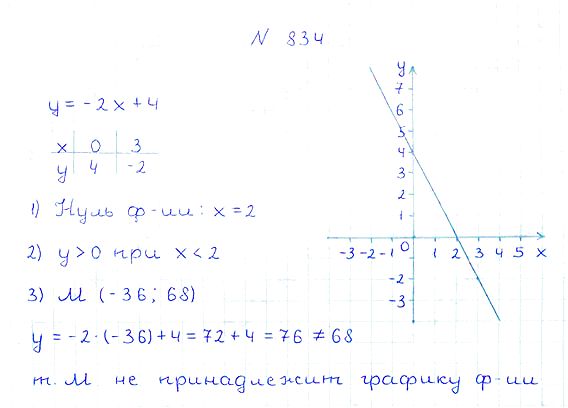 N 834
y = -2x + 4
x 0 3
y 4 -2
1) Нуль ф-ии: x = 2
2) y > 0 при x < 2
3) M (-36; 68)
y = -2·(-36) + 4 = 72 + 4 = 76 ≠ 68
т. M не принадлежит графику ф-ии
y
7
6
5
4
3
2
1
-3 -2 -1 0 1 2 3 4 5 x
-2
-3